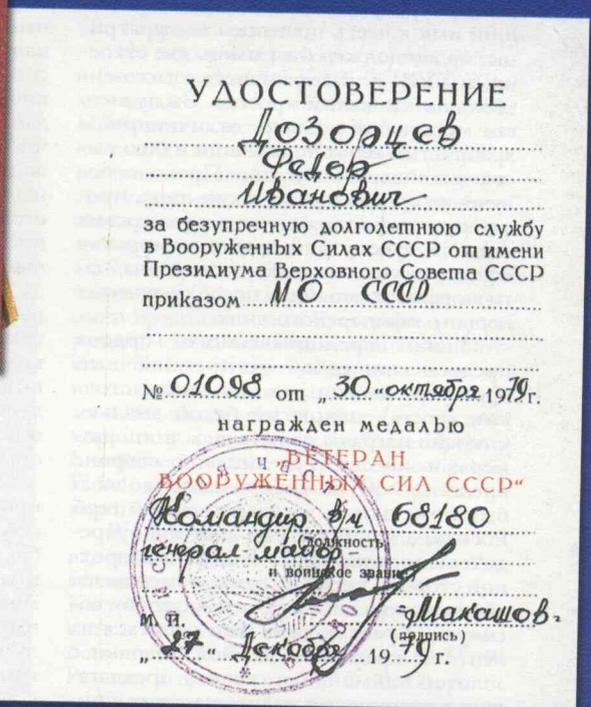 УДОСТОВЕРЕНИЕ
Дозорцев
Федор
Иванович
за безупречную долголетнюю службу
в Вооруженных Силах СССР от имени
Президиума Верховного Совета СССР
приказом МО СССР
№ 01098 от „30" октября 1979г.
награжден медалью
„ВЕТЕРАН
ВООРУЖЕННЫХ СИЛ СССР“
Командир в/ч 68180
(должность
генерал-майор
и воинское звание)
Макашов
М. П. (подпись)
„27" декабря 1979г.